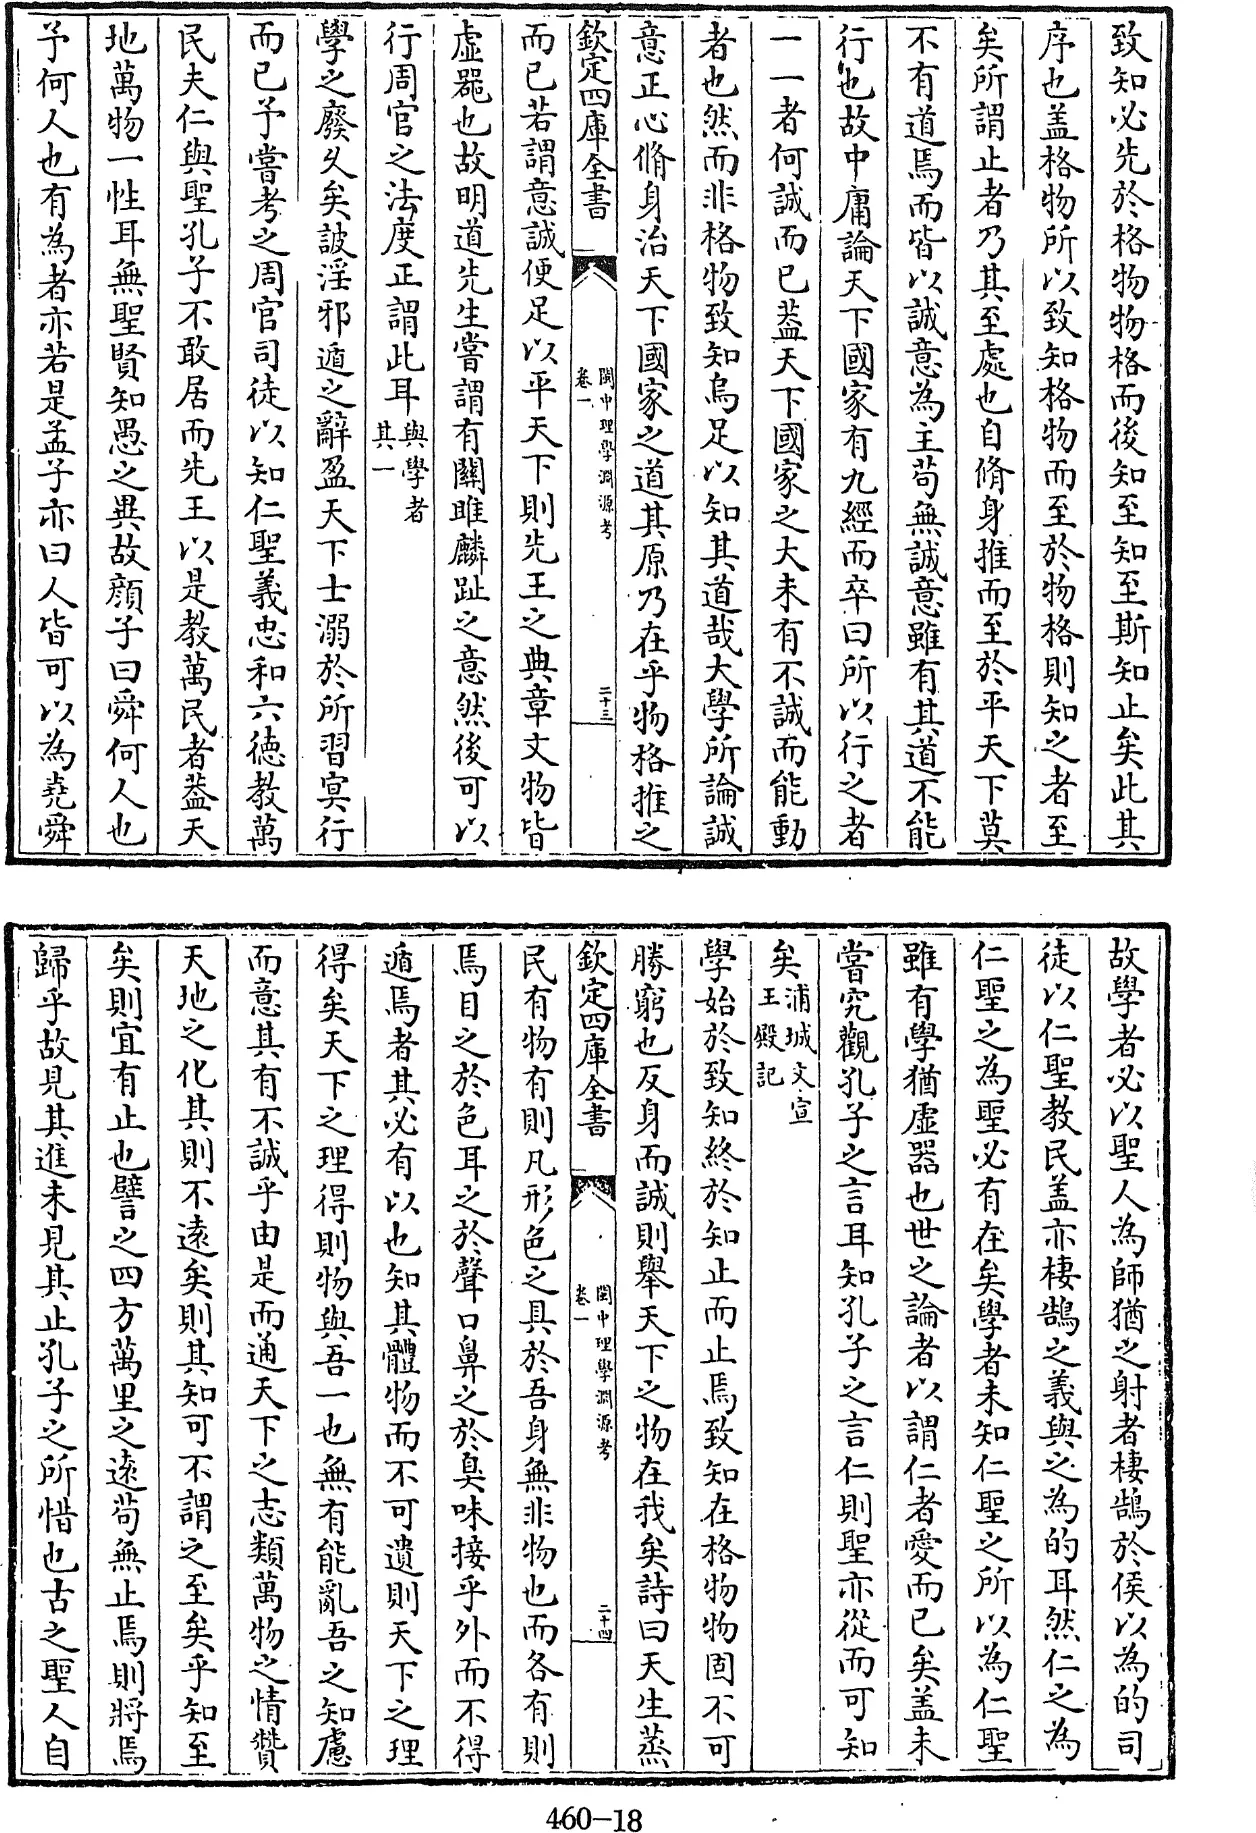 致知必先於格物物格而後知至知至斯知止矣此其
序也盖格物所以致知格物而至於物格則知之者至
矣所謂止者乃其至處也自脩身推而至於平天下莫
不有道焉而皆以誠意為主苟無誠意雖有其道不能
行也故中庸論天下國家有九經而卒曰所以行之者
一一者何誠而已葢天下國家之大未有不誠而能動
者也然而非格物致知烏足以知其道哉大學所論誠
意正心脩身治天下國家之道其原乃在乎物格推之
欽定四庫全書
閩中理學淵源考
卷一
二十三
而已若謂意誠便足以平天下則先王之典章文物皆
虛器也故明道先生嘗謂有關雎麟趾之意然後可以
行周官之法度正謂此耳與學者
其一
學之廢久矣詖淫邪遁之辭盈天下士溺於所習冥行
而已予嘗考之周官司徒以知仁聖義忠和六德教萬
民夫仁與聖孔子不敢居而先王以是教萬民者葢天
地萬物一性耳無聖賢知愚之異故顔子曰舜何人也
予何人也有為者亦若是孟子亦曰人皆可以為堯舜
故學者必以聖人為師猶之射者棲鵠於侯以為的司
徒以仁聖教民盖亦棲鵠之義與之為的耳然仁之為
仁聖之為聖必有在矣學者未知仁聖之所以為仁聖
雖有學猶虛器也世之論者以謂仁者愛而已矣盖未
嘗究觀孔子之言耳知孔子之言仁則聖亦從而可知
矣浦城文宣
王殿記
學始於致知終於知止而止焉致知在格物物固不可
勝窮也反身而誠則舉天下之物在我矣詩曰天生蒸
欽定四庫全書
閩中理學淵源考
卷一
二十四
民有物有則凡形色之具於吾身無非物也而各有則
焉目之於色耳之於聲口鼻之於臭味接乎外而不得
遁焉者其必有以也知其體物而不可遺則天下之理
得矣天下之理得則物與吾一也無有能亂吾之知慮
而意其有不誠乎由是而通天下之志類萬物之情贊
天地之化其則不遠矣則其知可不謂之至矣乎知至
矣則宜有止也譬之四方萬里之遠苟無止焉則將焉
歸乎故見其進未見其止孔子之所惜也古之聖人自
460-18